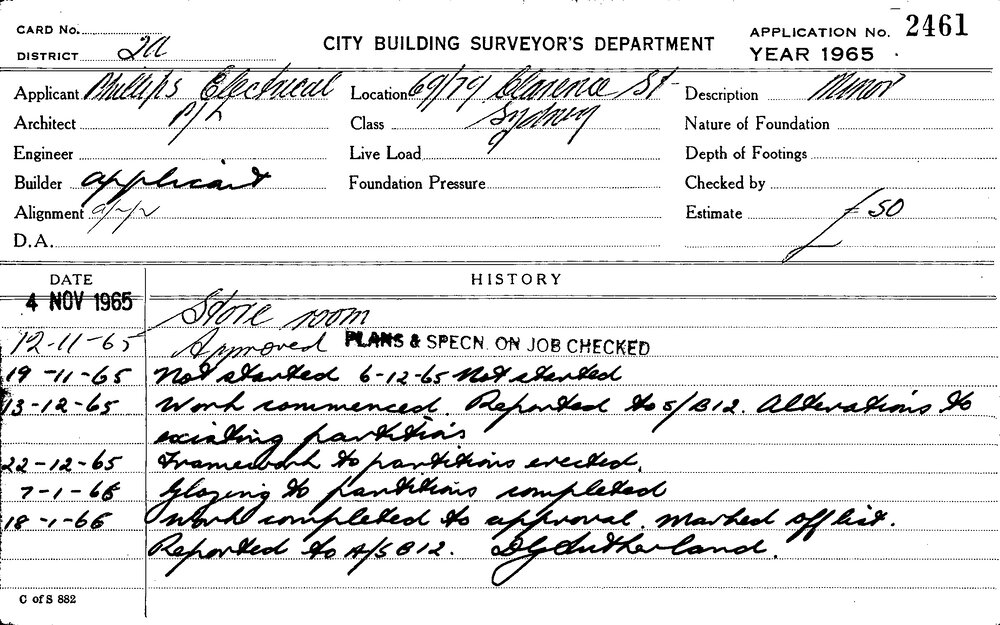 CARD No. CITY BUILDING SURVEYOR'S DEPARTMENT APPLICATION No. 2461
DISTRICT 2a YEAR 1965
Applicant Phillips Electrical Location 69/79 Clarence St Description Minor
Architect P/L Class Sydney Nature of Foundation
Engineer Live Load Depth of Footings
Builder applicant Foundation Pressure Checked by
Alignment Estimate £50
D.A.
DATE HISTORY
4 NOV 1965 Store room
12-11-65 Approved PLANS & SPECN. ON JOB CHECKED
19-11-65 Not started 6-12-65 Not started
13-12-65 Work commenced. Reported to S/B12. Alterations to
existing partitions
22-12-65 Framework to partitions erected.
7-1-66 Glazing to partitions completed
18-1-66 Work completed to approval. Marked off list.
Reported to A/S B12. DG Sutherland.
C of S 882